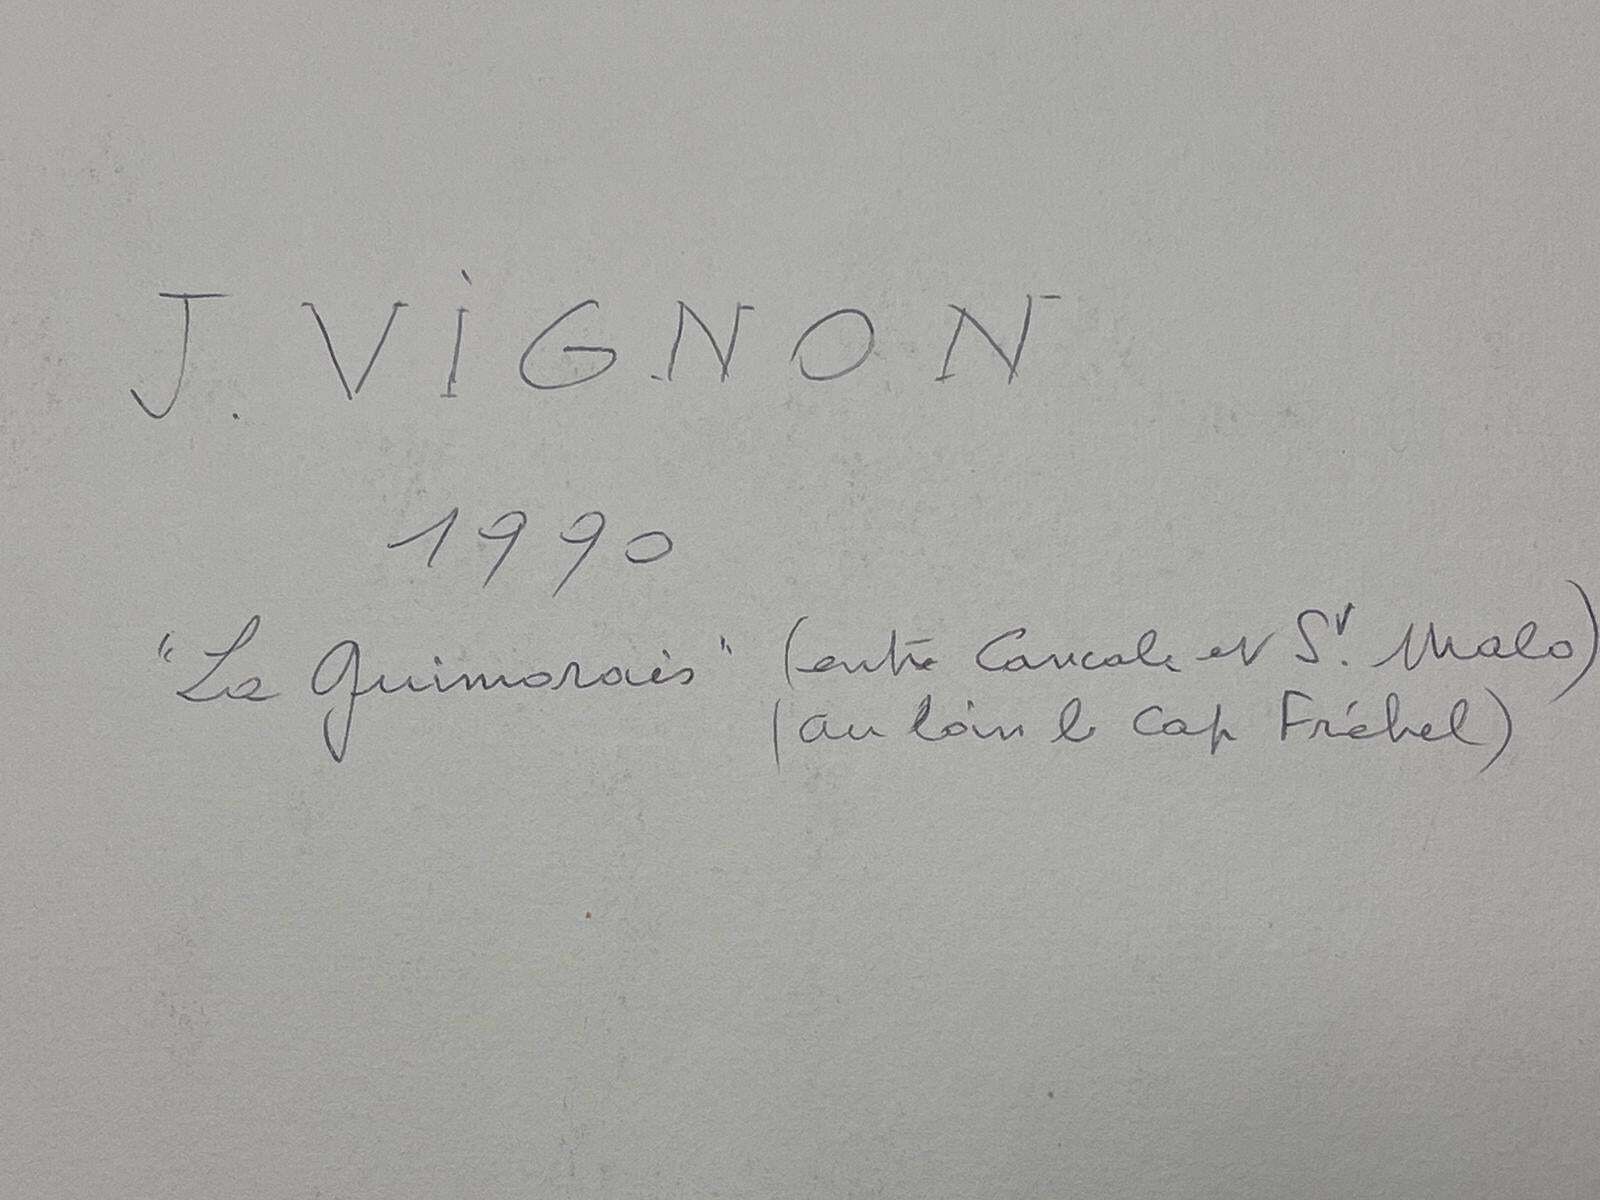 J. VIGNON
1990
"La Guimorais" (entre Cancale et St. Malo)
(au loin le Cap Fréhel)